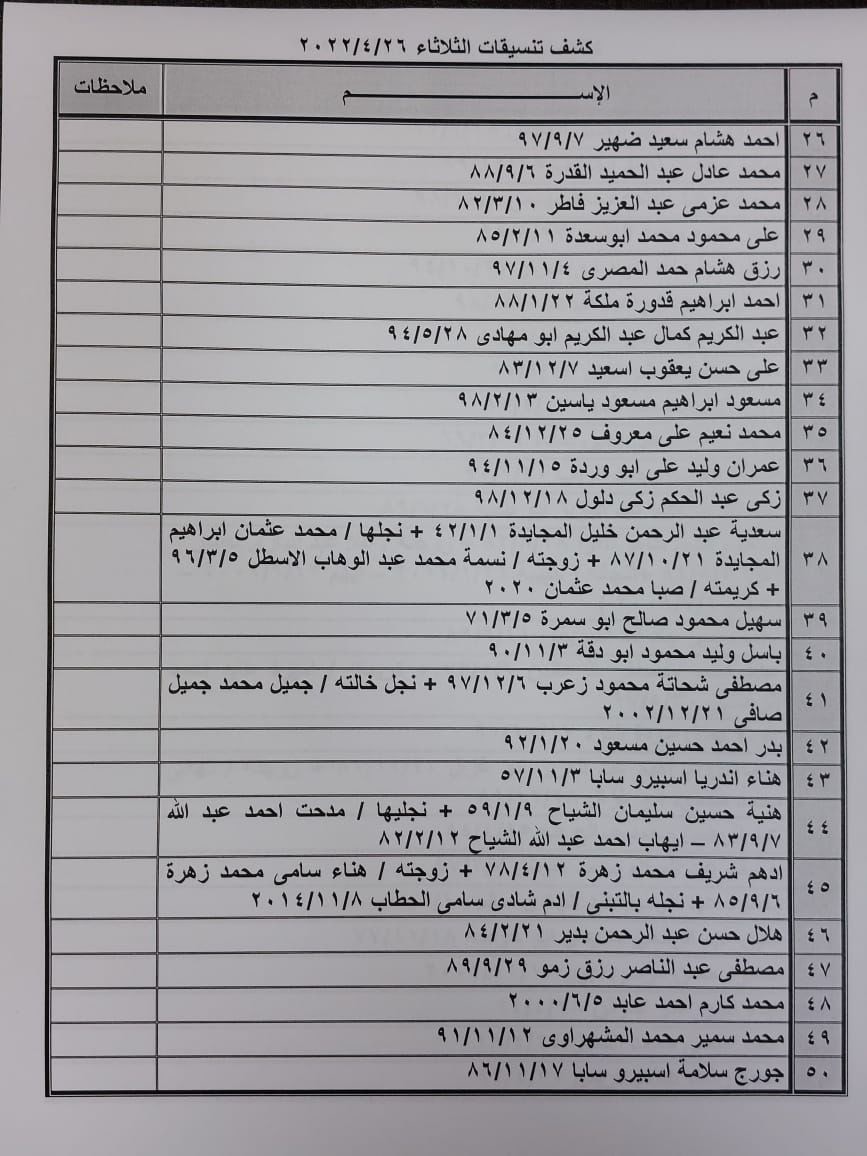 كشف تنسيقات الثلاثاء ٢٠٢٢/٤/٢٦
م الإســـــــــــم ملاحظات
٢٦ احمد هشام سعيد ضهير ٩٧/٩/٧
٢٧ محمد عادل عبد الحميد القدرة ٨٨/٩/٦
٢٨ محمد عزمى عبد العزيز فاطر ٨٢/٣/١٠
٢٩ على محمود محمد ابوسعدة ٨٥/٢/١١
٣٠ رزق هشام حمد المصرى ٩٧/١١/٤
٣١ احمد ابراهيم قدورة ملكة ٨٨/١/٢٢
٣٢ عبد الكريم كمال عبد الكريم ابو مهادى ٩٤/٥/٢٨
٣٣ على حسن يعقوب اسعيد ٨٣/١٢/٧
٣٤ مسعود ابراهيم مسعود ياسين ٩٨/٢/١٣
٣٥ محمد نعيم على معروف ٨٤/١٢/٢٥
٣٦ عمران وليد على ابو وردة ٩٤/١١/١٥
٣٧ زكى عبد الحكم زكى دلول ٩٨/١٢/١٨
٣٨ سعدية عبد الرحمن خليل المجايدة ٤٢/١/١ + نجلها / محمد عثمان ابراهيم
المجايدة ٨٧/١٠/٢١ + زوجته / نسمة محمد عبد الوهاب الاسطل ٩٦/٣/٥
+ كريمته / صبا محمد عثمان ٢٠٢٠
٣٩ سهيل محمود صالح ابو سمرة ٧١/٣/٥
٤٠ باسل وليد محمود ابو دقة ٩٠/١١/٣
٤١ مصطفى شحاتة محمود زعرب ٩٧/١٢/٦ + نجل خالته / جميل محمد جميل
صافى ٢٠٠٢/١٢/٢١
٤٢ بدر احمد حسين مسعود ٩٢/١/٢٠
٤٣ هناء اندريا اسبيرو سابا ٥٧/١١/٣
٤٤ هنية حسين سليمان الشياح ٥٩/١/٩ + نجليها / مدحت احمد عبد الله
٨٣/٩/٧ – ايهاب احمد عبد الله الشياح ٨٢/٢/١٢
٤٥ ادهم شريف محمد زهرة ٧٨/٤/١٢ + زوجته / هناء سامى محمد زهرة
٨٥/٩/٦ + نجله بالتبنى / ادم شادى سامى الحطاب ٢٠١٤/١١/٨
٤٦ هلال حسن عبد الرحمن بدير ٨٤/٢/٢١
٤٧ مصطفى عبد الناصر رزق زمو ٨٩/٩/٢٩
٤٨ محمد كارم احمد عابد ٢٠٠٠/٦/٥
٤٩ محمد سمير محمد المشهراوى ٩١/١١/١٢
٥٠ جورج سلامة اسبيرو سابا ٨٦/١١/١٧